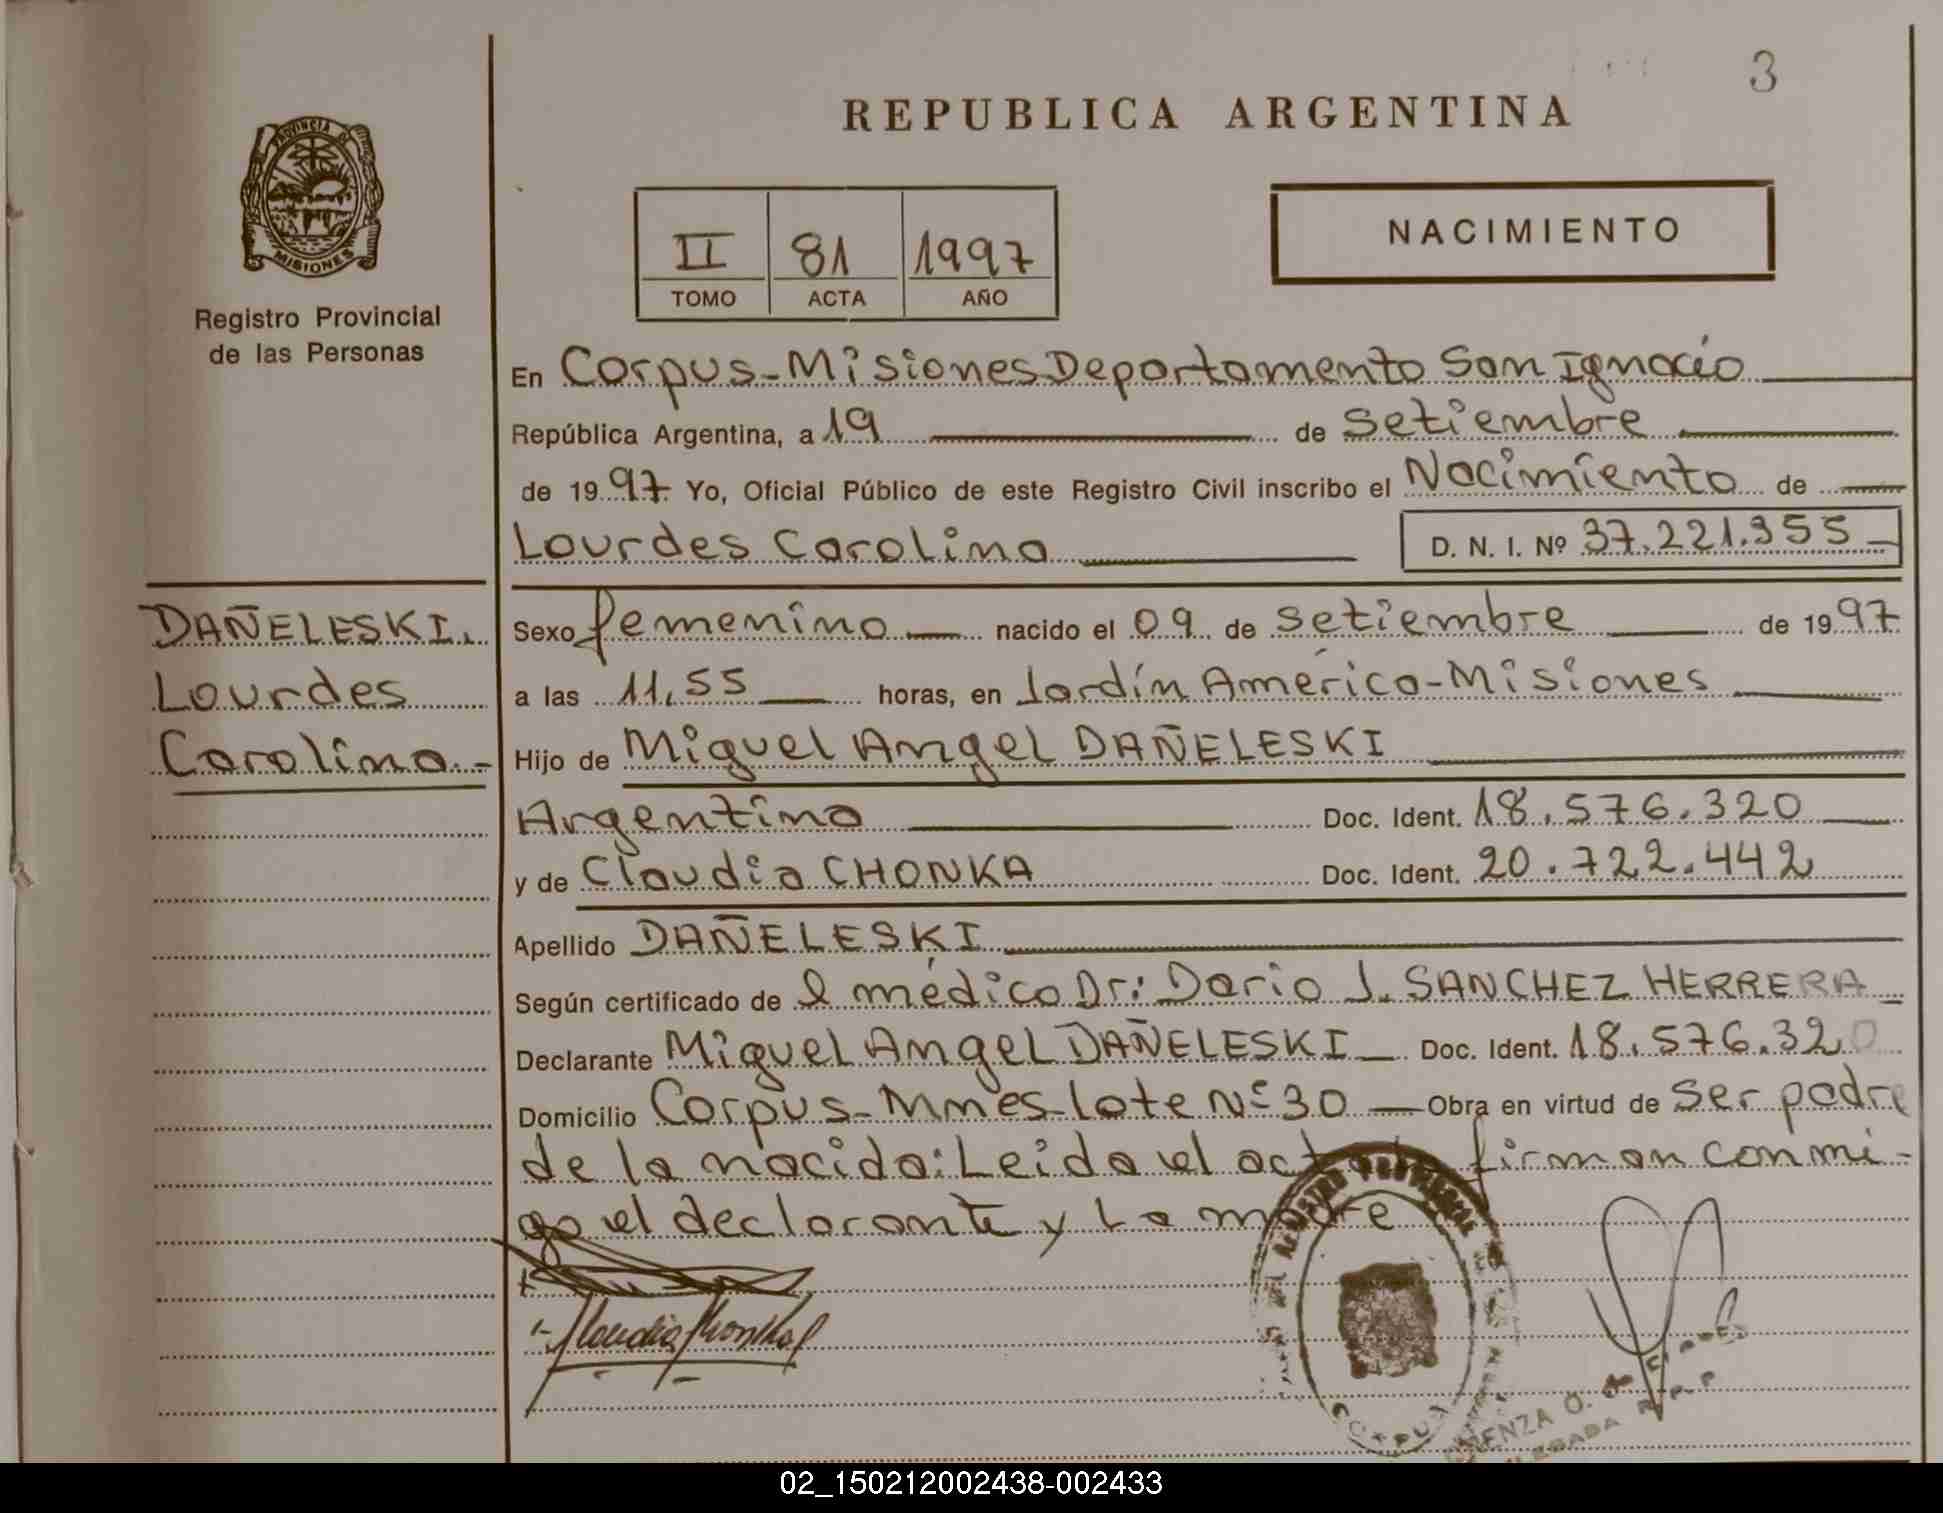 3
REPUBLICA ARGENTINA
PROVINCIA DE
MISIONES
Registro Provincial
de las Personas
II 81 1997
TOMO ACTA AÑO
NACIMIENTO
En Corpus-Misiones Departamento San Ignacio
República Argentina, a 19 de setiembre
de 1997 Yo, Oficial Público de este Registro Civil inscribo el Nacimiento de
Lourdes Carolina
D. N. I. Nº 37.221.355
DAÑELESKI.
Lourdes
Carolina.-
Sexo femenino nacido el 09 de setiembre de 1997
a las 11,55 horas, en Jardín América-Misiones
Hijo de Miguel Angel DAÑELESKI
Argentina Doc. Ident. 18.576.320
y de Claudia CHONKA Doc. Ident. 20.722.442
Apellido DAÑELESKI
Según certificado de l médico Dr: Dario J. SANCHEZ HERRERA
Declarante Miguel Angel DAÑELESKI Doc. Ident. 18.576.320
Domicilio Corpus-Mnes-lote Nº 30 Obra en virtud de ser padre
de la nacida: Leida el acta firman conmi-
go el declarante y La madre
Claudia Chonka
CORPUS
02_150212002438-002433